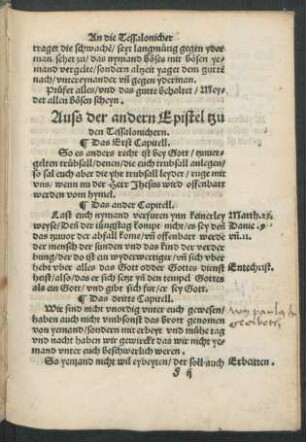 An die Tessalonicher
trager die schwache/ seyt langmütig gegen yder
man sehet zu/ das nymand böses mit bösen ye-
mand vergelte/ sondern alzeyt yaget dem gutte
nach/ vntereynander vñ gegen yderman.
Prüfet alles/ vnd das gutte behaltet/ Mey-
det allen bösen scheyn.
Auss der andern Epistel tzu
den Tessalonichern.
¶ Das Erst Capitell.
So es anders recht ist bey Gott/ tzuuer-
gelten trübsall/ denen/ die euch trübsall anlegen/
so sal euch aber die yhr trubsall leydet/ ruge mit
vns/ wenn nu der Herr Jhesus wird offenbart
werden vom hymel.
¶ Das ander Capitell.
Last euch nymand verfuren ynn keinerley
weyse/ Deñ der iüngstag kompt nicht/ es sey deñ
das tzuuor der abfall kome/ vñ offenbart werde
der mensch der sunden vnd das kind der verder
bung/ der do ist ein wyderwertiger/ vñ sich vber
hebt vber alles das Gott odder Gottes dienst
heist/ also/ das er sich setzt yñ den tempel Gottes
als ein Gott/ vnd gibt sich fur/ er sey Gott.
¶ Das dritte Capitell.
Wir sind nicht vnordig vnter euch gewesen/
haben auch nicht vmbsonst das brott genomen
von yemand/ sondern mit erbeyt vnd mühe tag
vnd nacht haben wir gewirckt das wir nicht ye-
mand vnter euch beschwerlich weren.
So yemand nicht wil eybeyten/ der soll auch
Matth.
Danie. 9
Entechrist.
wy paulus
Erbeiten.